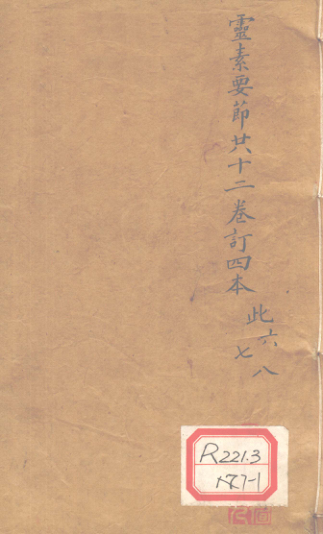 靈素要節共十二卷訂四本
此六
七八
R221.3